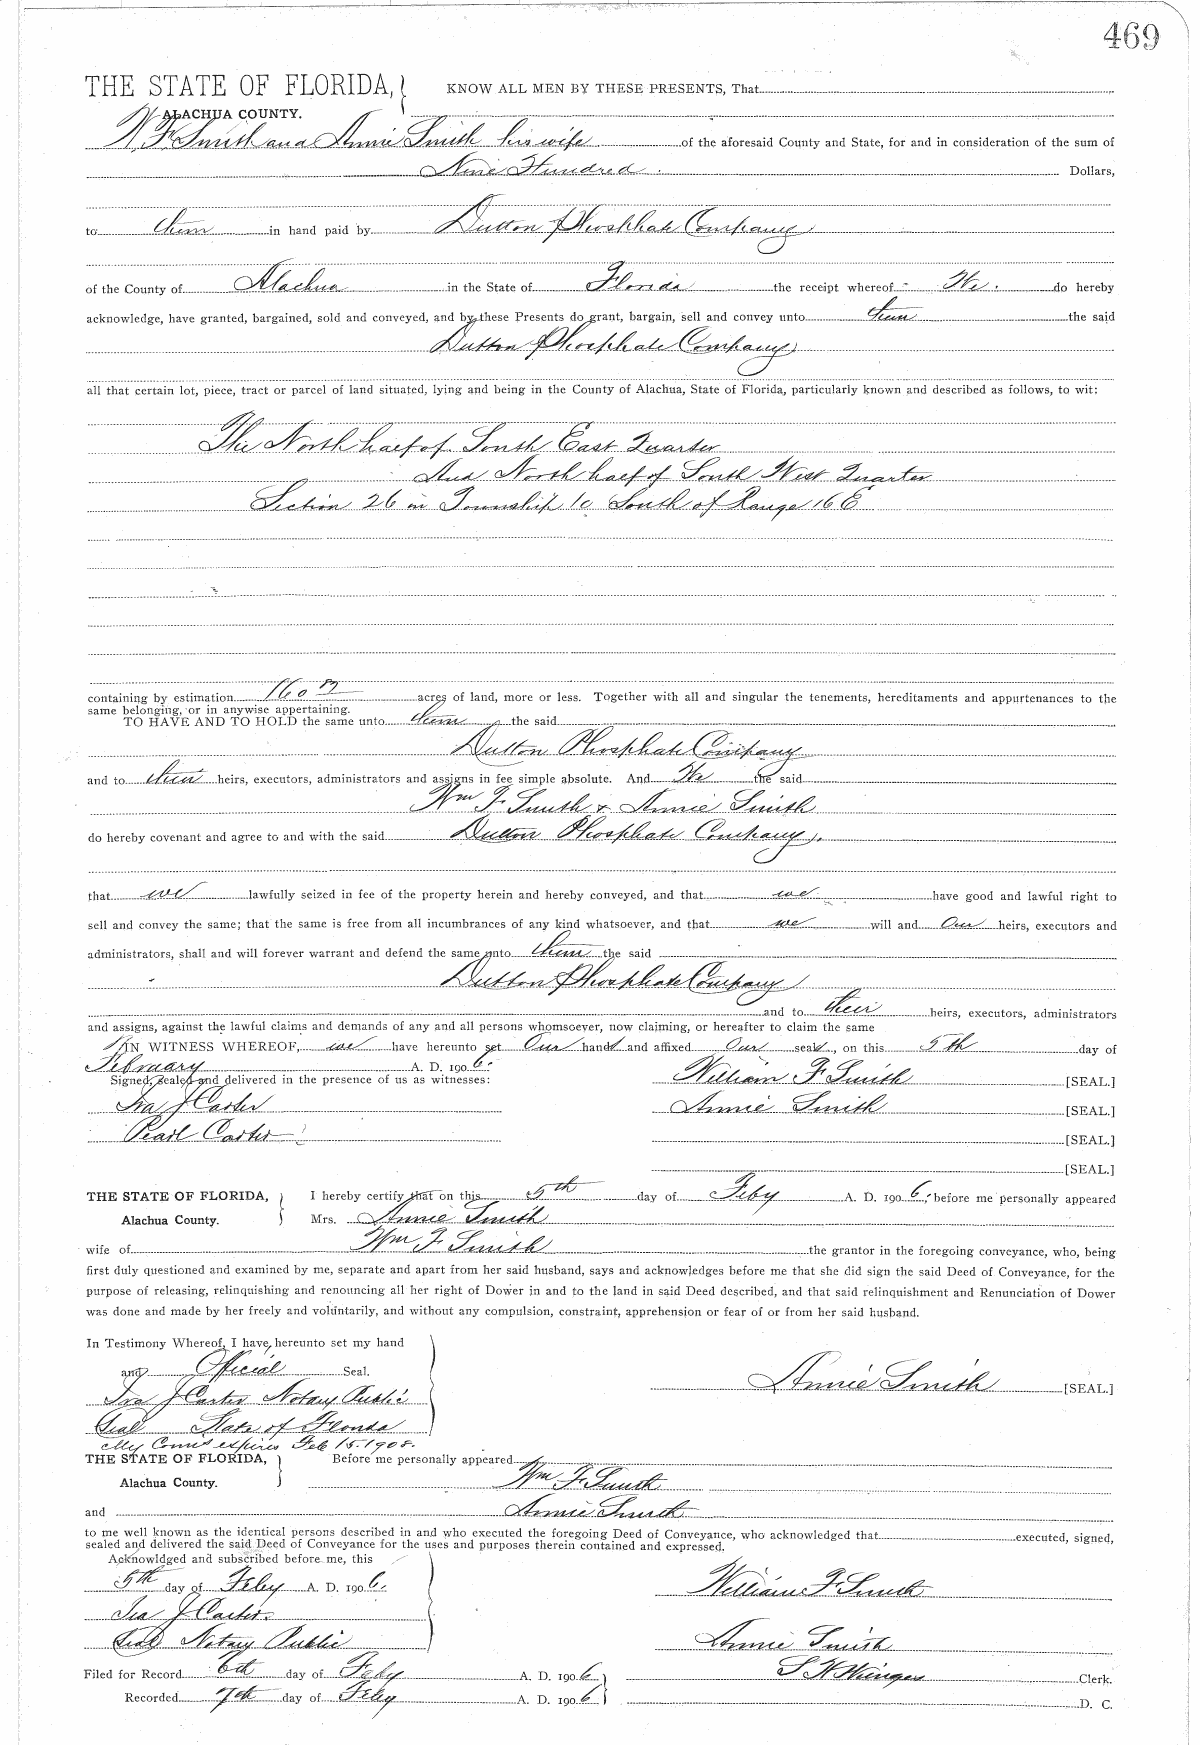 469
THE STATE OF FLORIDA, KNOW ALL MEN BY THESE PRESENTS, That
ALACHUA COUNTY.
W F Smith and Annie Smith his wife of the aforesaid County and State, for and in consideration of the sum of
Nine Hundred Dollars,
to them in hand paid by Dutton Phosphate Company
of the County of Alachua in the State of Florida the receipt whereof We do hereby
acknowledge, have granted, bargained, sold and conveyed, and by these Presents do grant, bargain, sell and convey unto them the said
Dutton Phosphate Company
all that certain lot, piece, tract or parcel of land situated, lying and being in the County of Alachua, State of Florida, particularly known and described as follows, to wit:
The North half of South East Quarter
And North half of South West Quarter
Section 26 in Township 10 South of Range 16 E
containing by estimation 160 acres of land, more or less. Together with all and singular the tenements, hereditaments and appurtenances to the
same belonging, or in anywise appertaining.
TO HAVE AND TO HOLD the same unto them the said
Dutton Phosphate Company
and to their heirs, executors, administrators and assigns in fee simple absolute. And We the said
Wm F Smith & Annie Smith
do hereby covenant and agree to and with the said Dutton Phosphate Company,
that we lawfully seized in fee of the property herein and hereby conveyed, and that we have good and lawful right to
sell and convey the same; that the same is free from all incumbrances of any kind whatsoever, and that we will and Our heirs, executors and
administrators, shall and will forever warrant and defend the same unto them the said
Dutton Phosphate Company
and to their heirs, executors, administrators
and assigns, against the lawful claims and demands of any and all persons whomsoever, now claiming, or hereafter to claim the same
IN WITNESS WHEREOF, we have hereunto set Our hands and affixed Our seals, on this 5th day of
February A. D. 1906.
Signed, sealed and delivered in the presence of us as witnesses: William F Smith [SEAL.]
Ira J Carter Annie Smith [SEAL.]
Pearl Carter [SEAL.]
[SEAL.]
THE STATE OF FLORIDA, I hereby certify that on this 5th day of Feby A. D. 1906, before me personally appeared
Alachua County. Mrs. Annie Smith
wife of Wm F Smith the grantor in the foregoing conveyance, who, being
first duly questioned and examined by me, separate and apart from her said husband, says and acknowledges before me that she did sign the said Deed of Conveyance, for the
purpose of releasing, relinquishing and renouncing all her right of Dower in and to the land in said Deed described, and that said relinquishment and Renunciation of Dower
was done and made by her freely and voluntarily, and without any compulsion, constraint, apprehension or fear of or from her said husband.
In Testimony Whereof, I have hereunto set my hand
and Official Seal.
Annie Smith [SEAL.]
Ira J Carter Notary Public
Seal State of Florida
My Comms expires Feb 15. 1908.
THE STATE OF FLORIDA, Before me personally appeared
Alachua County. Wm F Smith
and Annie Smith
to me well known as the identical persons described in and who executed the foregoing Deed of Conveyance, who acknowledged that executed, signed,
sealed and delivered the said Deed of Conveyance for the uses and purposes therein contained and expressed.
Acknowldged and subscribed before me, this
5th day of Feby A. D. 1906. William F Smith
Ira J Carter
Seal Notary Public Annie Smith
Filed for Record 6th day of Feby A. D. 1906 Clerk.
Recorded 7th day of Feby A. D. 1906 D. C.